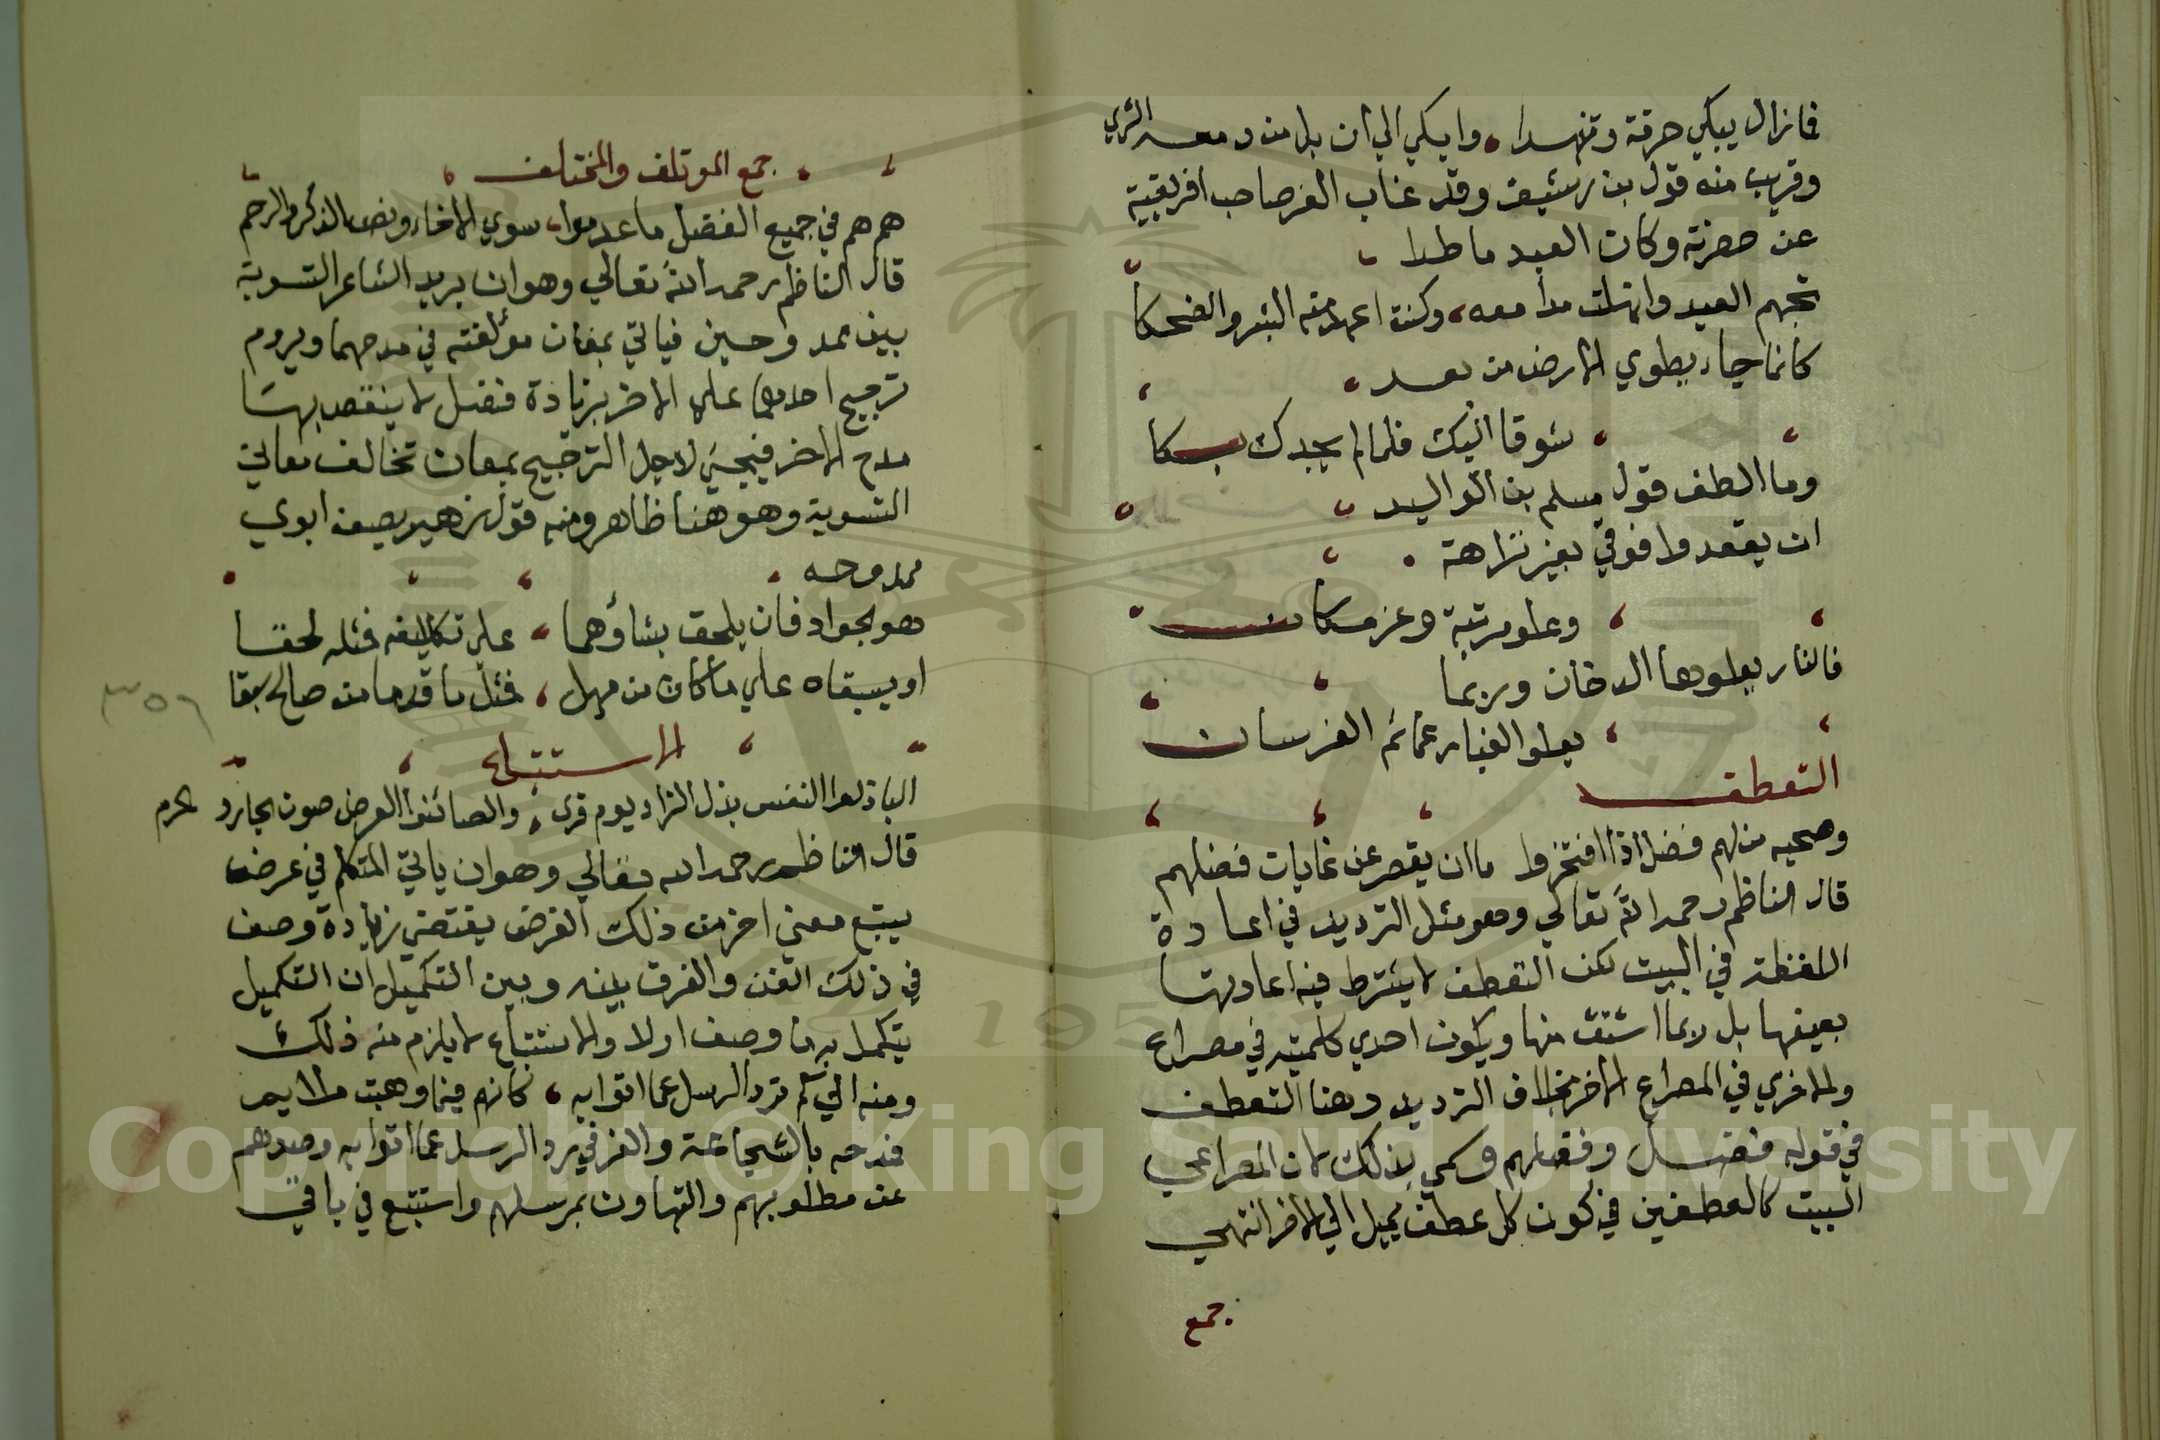 فما زال يبكي حرقة وتنهدا وابكي الي ان بل من دمعه الثري
وقريب منه قول بن رشيق وقد غاب المعز صاحب افريقية
عن حضرته وكان العيد ماطرا
تجهم العيد وانهلت مدامعه وكنت اعهد منه البشر والضحكا
كانما جاء يطوي الارض من بعد
شوقا اليك فلما لم يجدك بكا
وما الطف قول مسلم بن الوليد
ان يقعدوا فوقي بغير نزاهة
وعلو مرتبة وعز مكان
فالنار يعلوها الدخان وربما
يعلو الغبار عمائم الفرسان
التعطف
وصحبه من لهم فضل اذا افتخروا ما ان يقصر عن غايات فضلهم
قال الناظم رحمه الله تعالي وهو مثل الترديد في اعادة
اللفظة في البيت لكن التعطف لا يشترط فيه اعادتها
بعينها بل ربما اشتق منها ويكون احدي كلمتيه في مصراع
والاخري في المصراع الاخر بخلاف الترديد وهنا التعطف
في قوله فضل وفضلهم وسمي بذلك لان المصراعي
البيت كالعطفين في كون كل عطف يميل الي الاخر انتهي
جمع
جمع الموتلف والمختلف
هم هم في جميع الفضل ما عدموا سوي الاخاء ونص الذكر والرحم
قال الناظم رحمه الله تعالي وهو ان يريد الشاعر التسوية
بين ممدوحين فياتي بمعان مؤلفته في مدحهما ويروم
ترجيح احدهما علي الاخر بزيادة فضل لا ينقص بها
مدح الاخر فيجيء لاجل الترجيح بمعان تخالف معاني
التسوية وهو هنا ظاهر ومنه قول زهير يصف ابوي
ممدوحه
هو الجواد فان يلحق بشأوهما علي تكاليفه فمثله لحقا
او يسبقاه علي ما كان من مهل فمثل ما قدما من صالح سبقا
٣٥٦
الاستتباع
الباذلوا النفس بذل الزاد يوم قري والصائنوا العرض صون الجار والحرم
قال الناظم رحمه الله تعالي وهو ان ياتي المتكلم في غرض
يتبع معني اخر من ذلك الغرض يقتضي زيادة وصف
في ذلك الفن والفرق بينه وبين التكميل ان التكميل
يتكمل به ما وصف اولا والاستتباع لا يلزم منه ذلك
ومنه الي كم ترد الرسل عما اتوا به كانهم فيما وهبت ملام
فمدحه بالشجاعة والعز في رد الرسل عما اتوا به وصدهم
عن مطلوبهم والتهاون بمرسلهم واستتبع في باقي